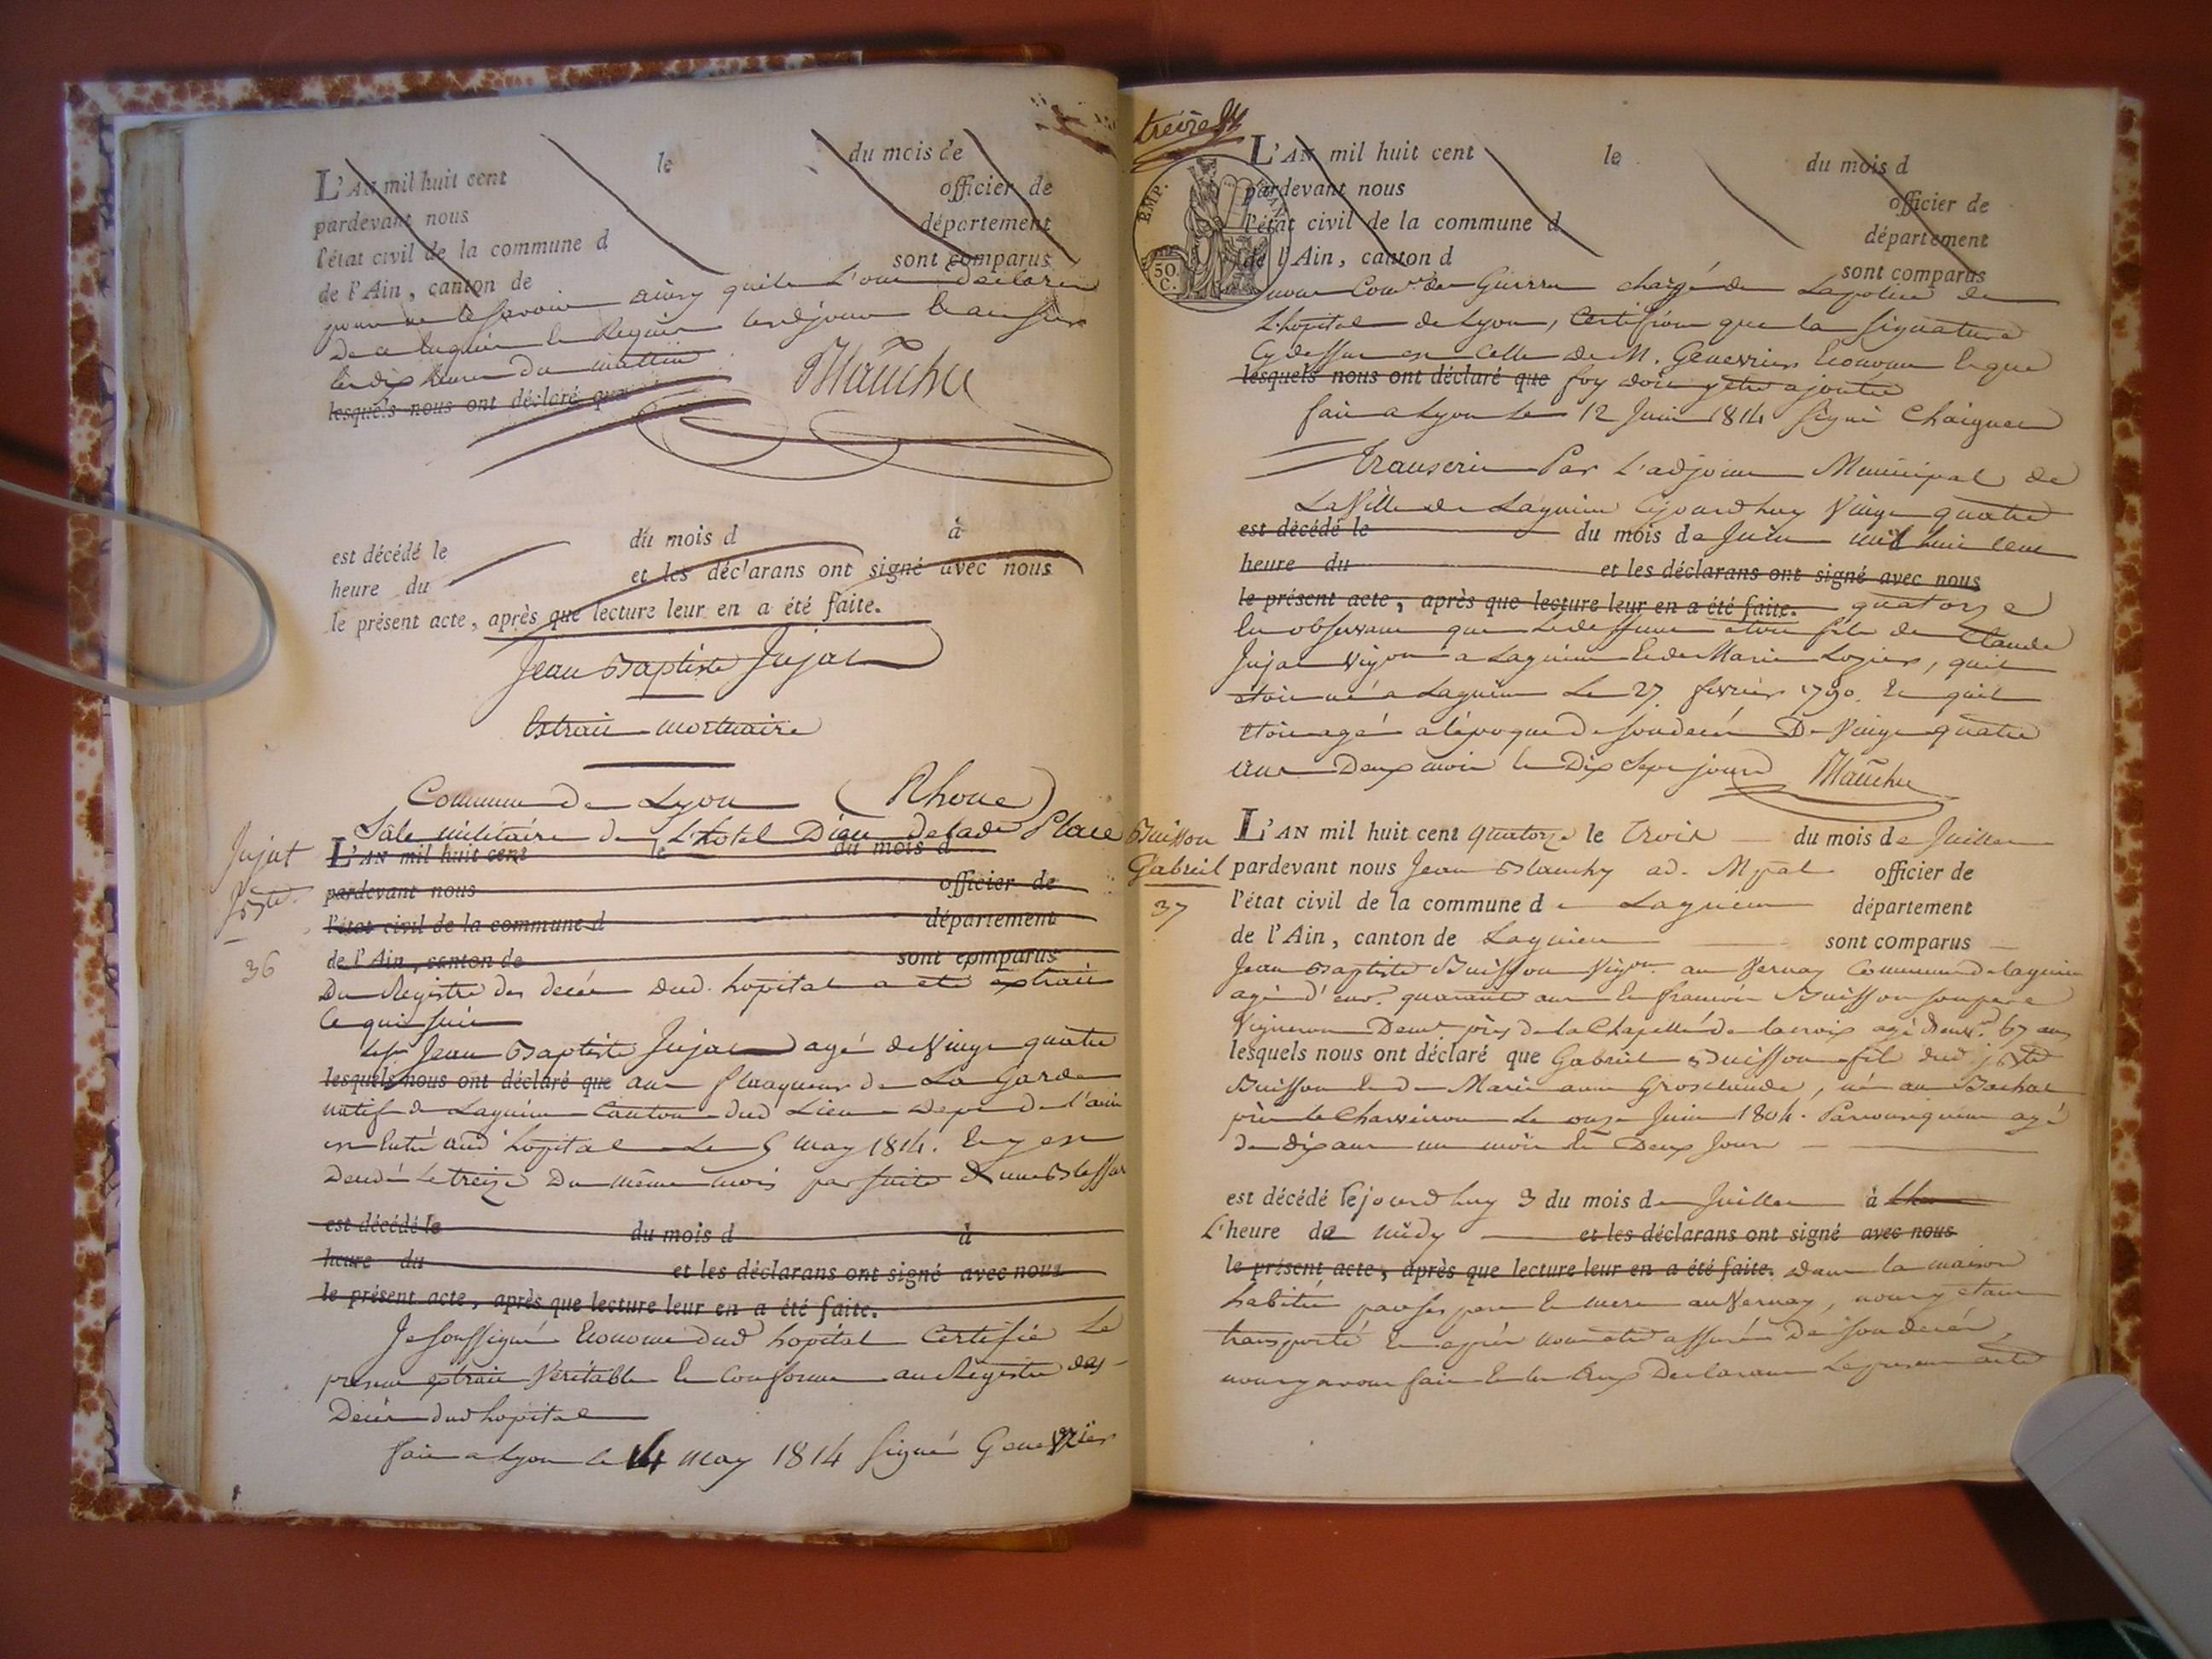 L'AN mil huit cent le du mois de
pardevant nous officier de
l'état civil de la commune d département
de l'Ain, canton de sont comparus
pour ne le savoir ainsy quils l'ont déclaré
De ce enquis le Requis lesd jour
les dix heures du mattin
lesquels nous ont déclaré que
est décédé le du mois d à
heure du et les déclarans ont signé avec nous
le présent acte, après que lecture leur en a été faite.
Jean Baptiste Jujat
Extrait mortuaire
Commune de Lyon (Rhone)
Sale militaire de L'hotel Dieu de lade Place
Jujat
L'AN mil huit cent le du mois d
pardevant nous officier de
l'état civil de la commune d département
36
de l'Ain, canton de sont comparus
Du Registre des décès dud. hopital a été extrait
Ce qui suit
Le sr Jean Baptiste Jujat agé de Vingt quatre
lesquels nous ont déclaré que ans flanqueur de La Garde
natif de Lagnieu Canton dud Lieu Depr de l'ain
est Entré aud hopital Le 5 may 1814. Et y est
Decedé Le treize Du même mois par suite d'une Blessur
est décédé le du mois d à
heure du et les déclarans ont signé avec nous
le présent acte, après que lecture leur en a été faite.
Je soussigné Econome dud hopital Certifie Le
présent extrait Véritable Et Conforme au Registre des
Décès dud hopital
fait a Lyon le 14 may 1814 signé Genevrier
treize
EMP. FRAN.
50.
C.
L'AN mil huit cent le du mois d
pardevant nous officier de
l'état civil de la commune d département
de l'Ain, canton d sont comparus
nous Comre des Guerres chargé de La police de
L'hopital de Lyon, Certifions que la signature
Cy dessus est Celle de M. Genevrier Econome Et que
lesquels nous ont déclaré que foy doit y être ajoutée
fait a Lyon Le 12 Juin 1814 signé Chaignet
Transcrit Par L'adjoint Municipal de
La Ville de Lagnieu Cejourdhuy Vingt quatre
est décédé le du mois de Juin mil huit cent
heure du et les déclarans ont signé avec nous
le présent acte, après que lecture leur en a été faite. quatorze
En observant que Ledeffunt étoit fils de Claude
Jujat Vigon a Lagnieu Et de Marie Lozier, quil
étoit né a Lagnieu Le 27 février 1790. Et quil
étoit agé a l'époque de son decès De Vingt quatre
ans Deux mois Et Dix Sept jours
Buisson
Gabriel
37
L'AN mil huit cent quatorze le trois du mois de Juillet
pardevant nous Jean Blanchy ad. Mpal officier de
l'état civil de la commune de Lagnieu département
de l'Ain, canton de Lagnieu sont comparus
Jean Baptiste Buisson Vigon au Vernay Commune de lagnieu
agé d'env. quarante ans Et francois Buisson son pere
Vigneron Demt près de la Chapelle de la croix agé d'env. 67 ans
lesquels nous ont déclaré que Gabriel Buisson fils dud j Bte
Buisson Et de Marie anne Grosclaude, né au Bachas
près le Charveiron Le onze Juin 1804. Par conséquent agé
de dix ans un mois Et Deux Jours
est décédé lejourdhuy 3 du mois de Juillet à
L'heure de midy et les déclarans ont signé avec nous
le présent acte, après que lecture leur en a été faite. dans la maison
habitée par ses pere Et mere au Vernay, nous y étant
transporté Et après nous être assuré De son decès,
nous y avons fait Et les Deux Declarans Le present acte